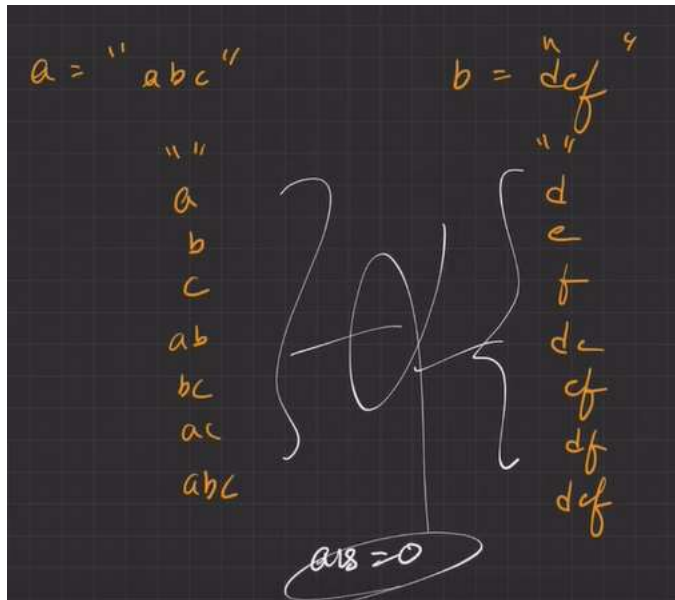 a = "abc"
b = "def"
" "
a
b
c
ab
bc
ac
abc
" "
d
e
f
de
ef
df
def
ans = 0